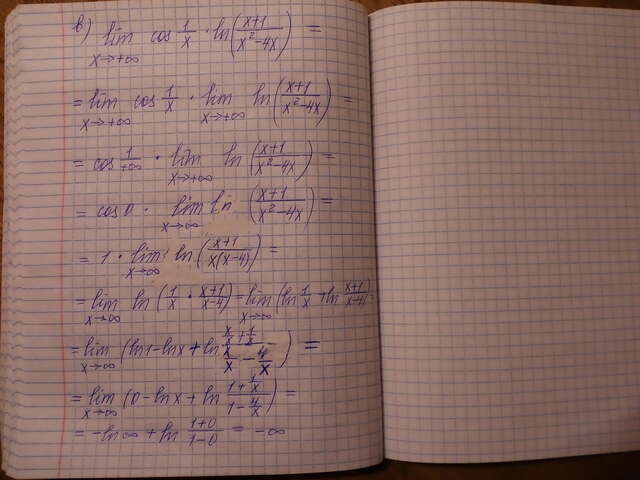 в) lim x→+∞ cos 1/x · ln((x+1)/(x²-4x)) =
= lim x→+∞ cos 1/x · lim x→+∞ ln((x+1)/(x²-4x)) =
= cos 1/+∞ · lim x→+∞ ln((x+1)/(x²-4x)) =
= cos 0 · lim x→∞ ln((x+1)/(x²-4x)) =
= 1 · lim x→∞ ln((x+1)/(x(x-4))) =
= lim x→∞ ln(1/x · (x+1)/(x-4)) = lim x→∞ (ln 1/x + ln (x+1)/(x-4)) =
= lim x→∞ (ln1 - lnx + ln (x/x + 1/x)/(x/x - 4/x)) =
= lim x→∞ (0 - lnx + ln (1 + 1/x)/(1 - 4/x)) =
= -ln∞ + ln (1+0)/(1-0) = -∞